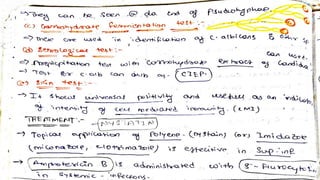 → They can be seen @ da end of Pseudohyphae.
(c.) Carbohydrate Fermentation test :-
→ These are used in identification of C. albicans & other sp
(d) Serological test :- can use.
→ Precipitation test with Carbohydrate Extract of Candida
→ Test for C. alb can also by - CIEP.
(e) Skin test :-
→ It shows universal positivity and useful as an indicator
of integrity of cell mediated immunity. (CMI)
TREATMENT :- NYSTATIN
→ Topical application of Polyene - (Nystatin) (or) Imidazole
(miconazole, clotrimazole) is effective in Sup. inf
→ Amphotericin B is administered with 5-Flurocytosine
in Systemic infections.